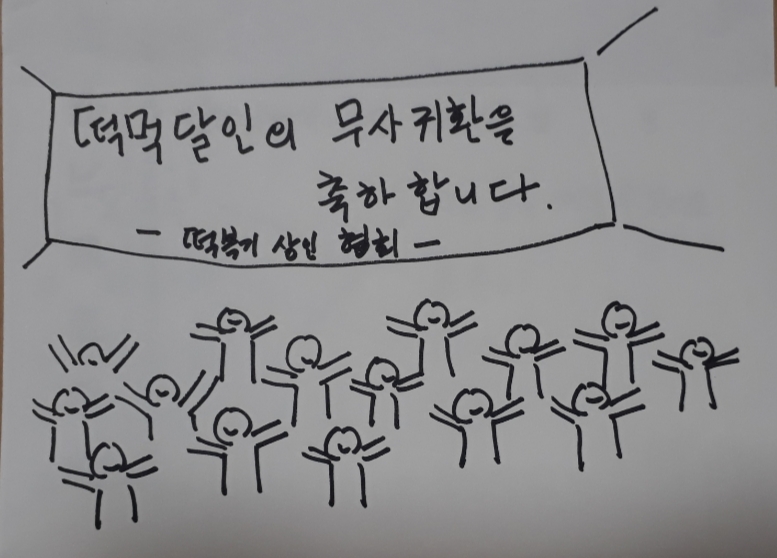 떡먹달인의 무사귀환을
축하합니다.
- 떡볶기 상인 협회 -